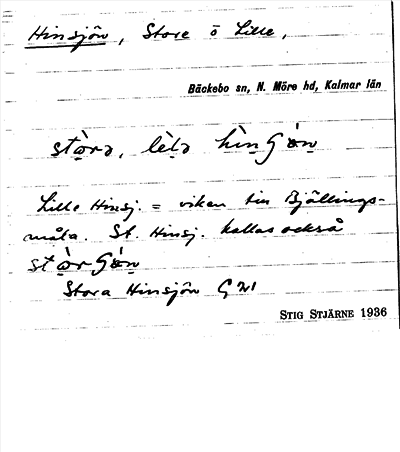 Hinsjön, Store o Lille,
Bäckebo sn, N. Möre hd, Kalmar län
Lille Hinsj. = viken till Bjällings-
måla. St. Hinsj. kallas också
Stora Hinsjön GW
STIG STJÄRNE 1936